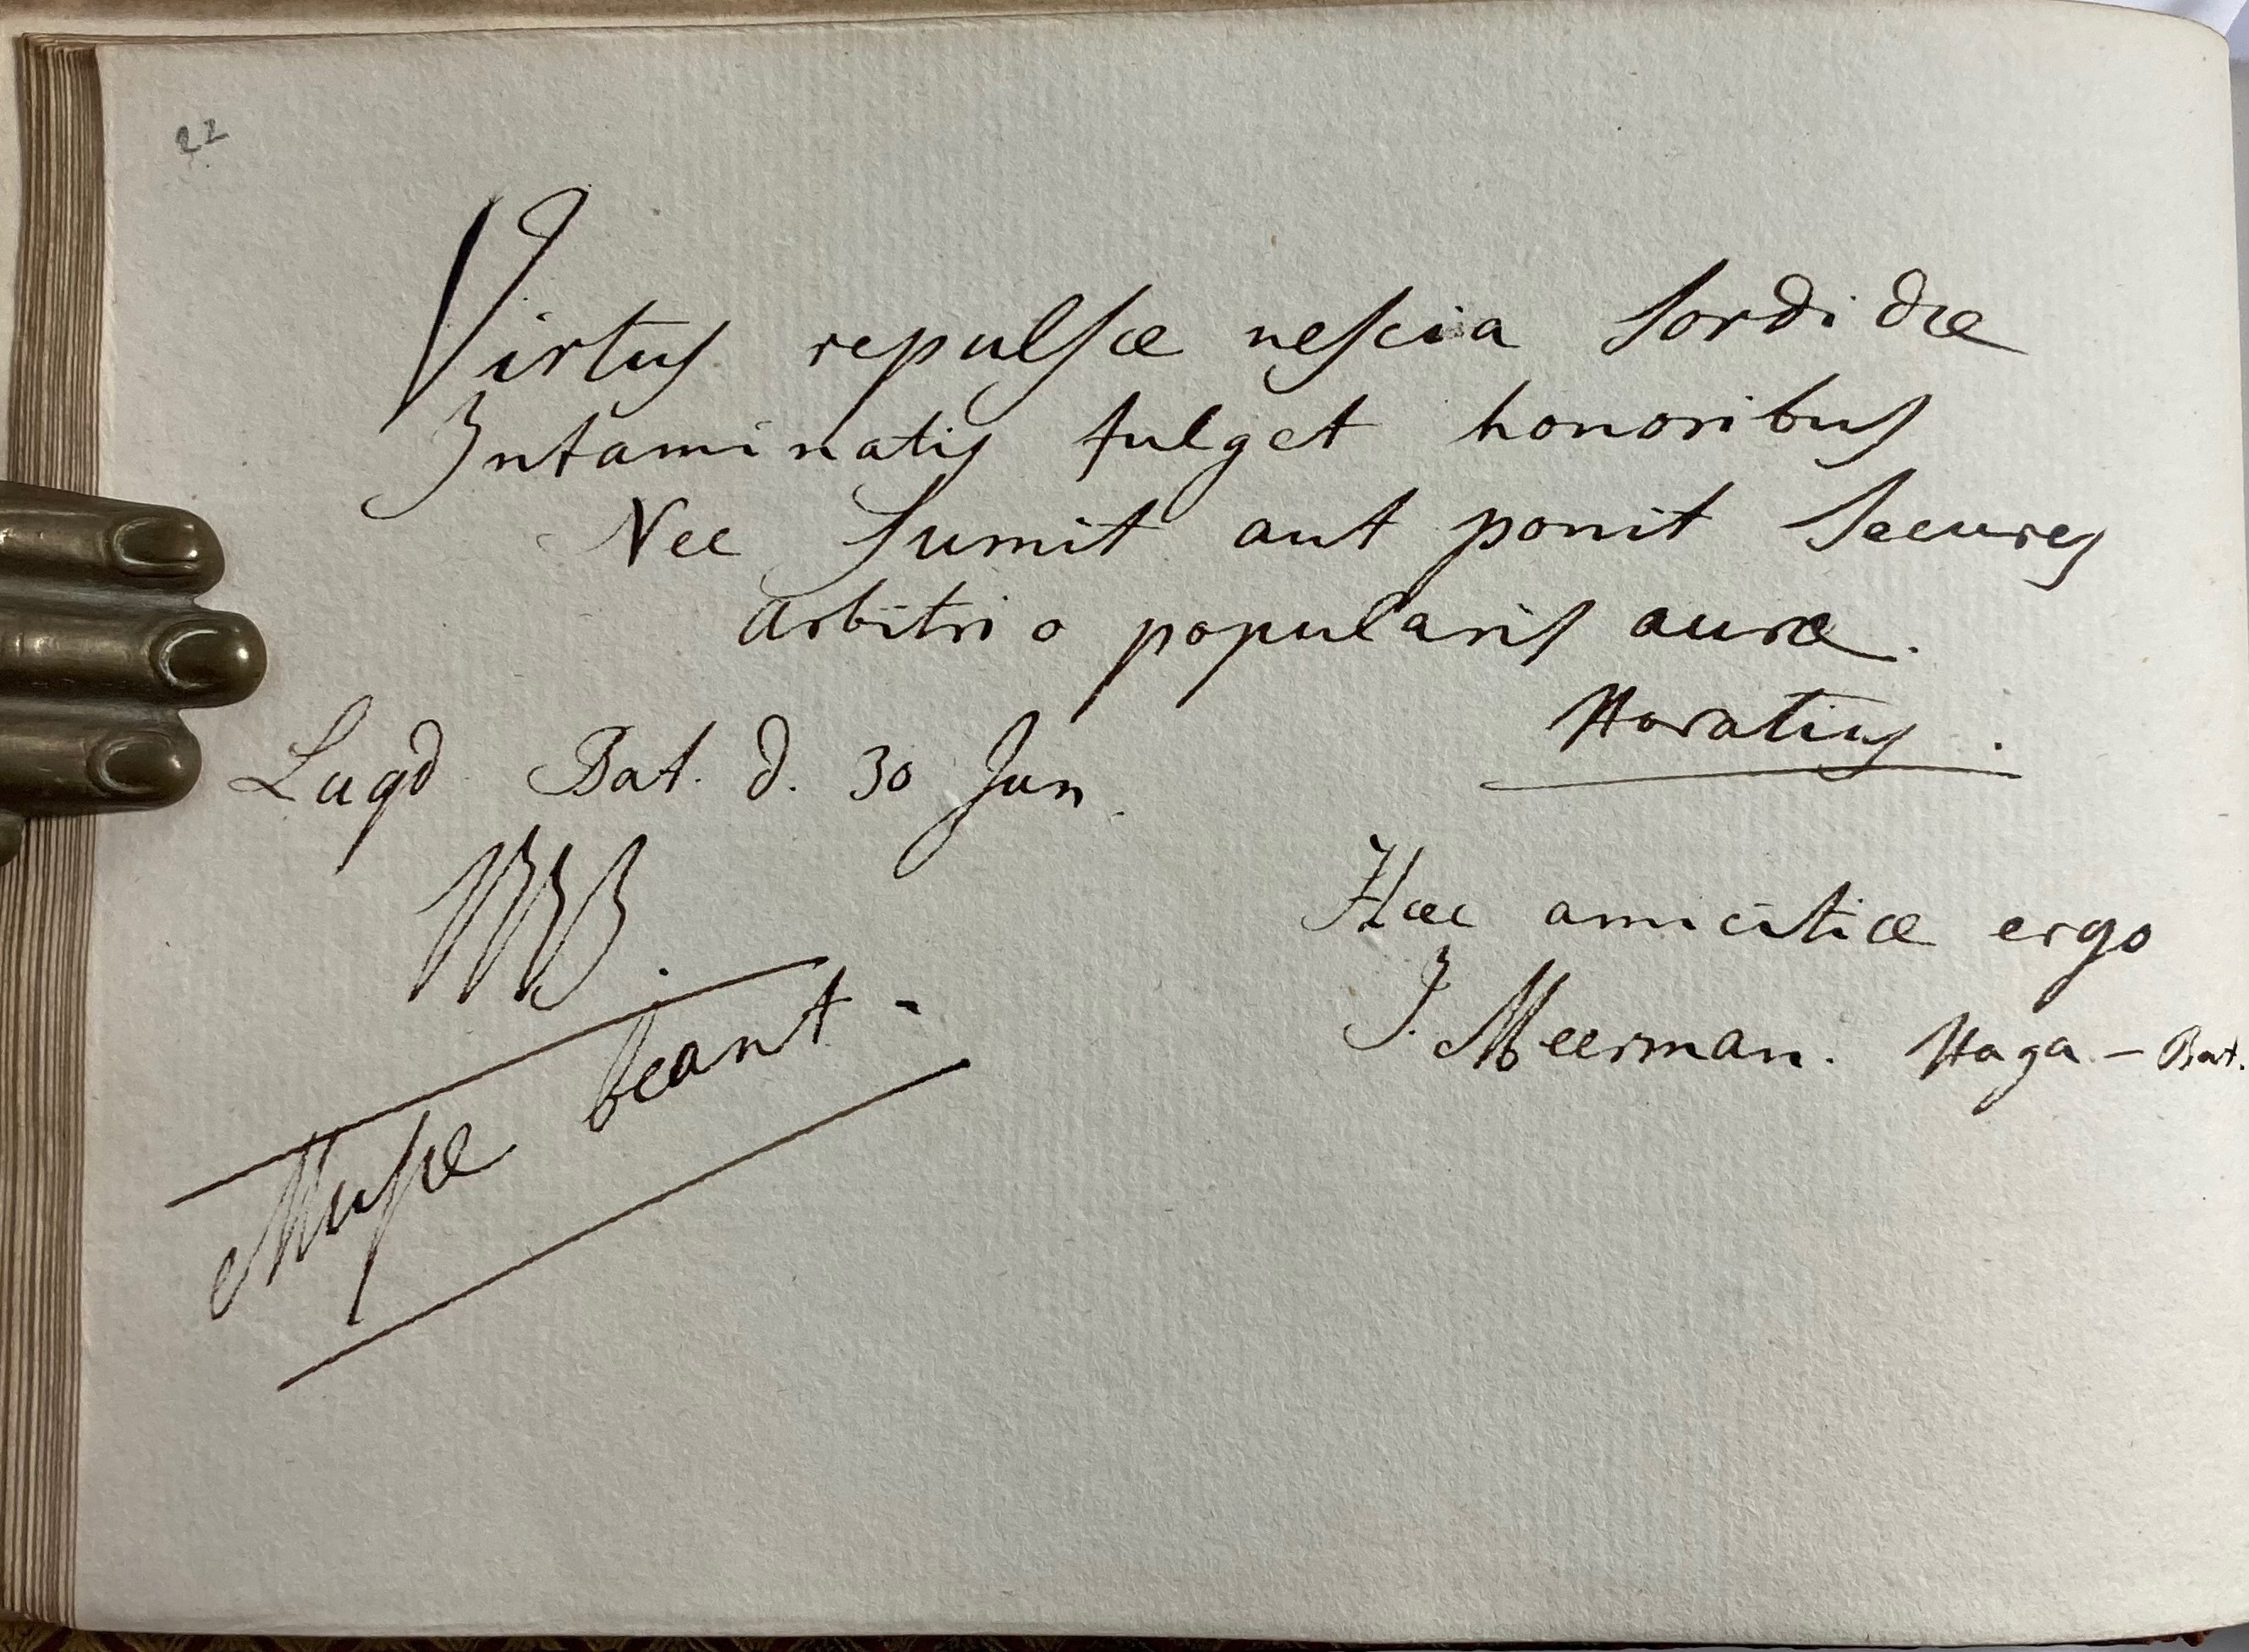 22
Virtus repulsæ nescia sordidæ
Intaminatis fulget honoribus
Nec sumit aut ponit secures
Arbitrio popularis auræ.
Horatius.
Lugd Bat. d. 30 Jun.
Hæc amicitiæ ergo
J. Meerman. Haga-Bat.
Musæ beant.